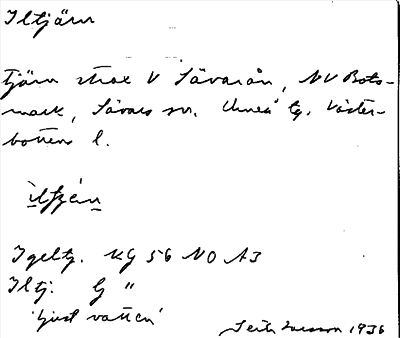 Iltjärn
tjärn strax V Sävarån, NV Bots-
mark, Sävars sn. Umeå tg. Väster-
bottens l.
Igeltj. KG 56 NO A3
Iltj. G "
'ljust vatten'
Larsson 1936